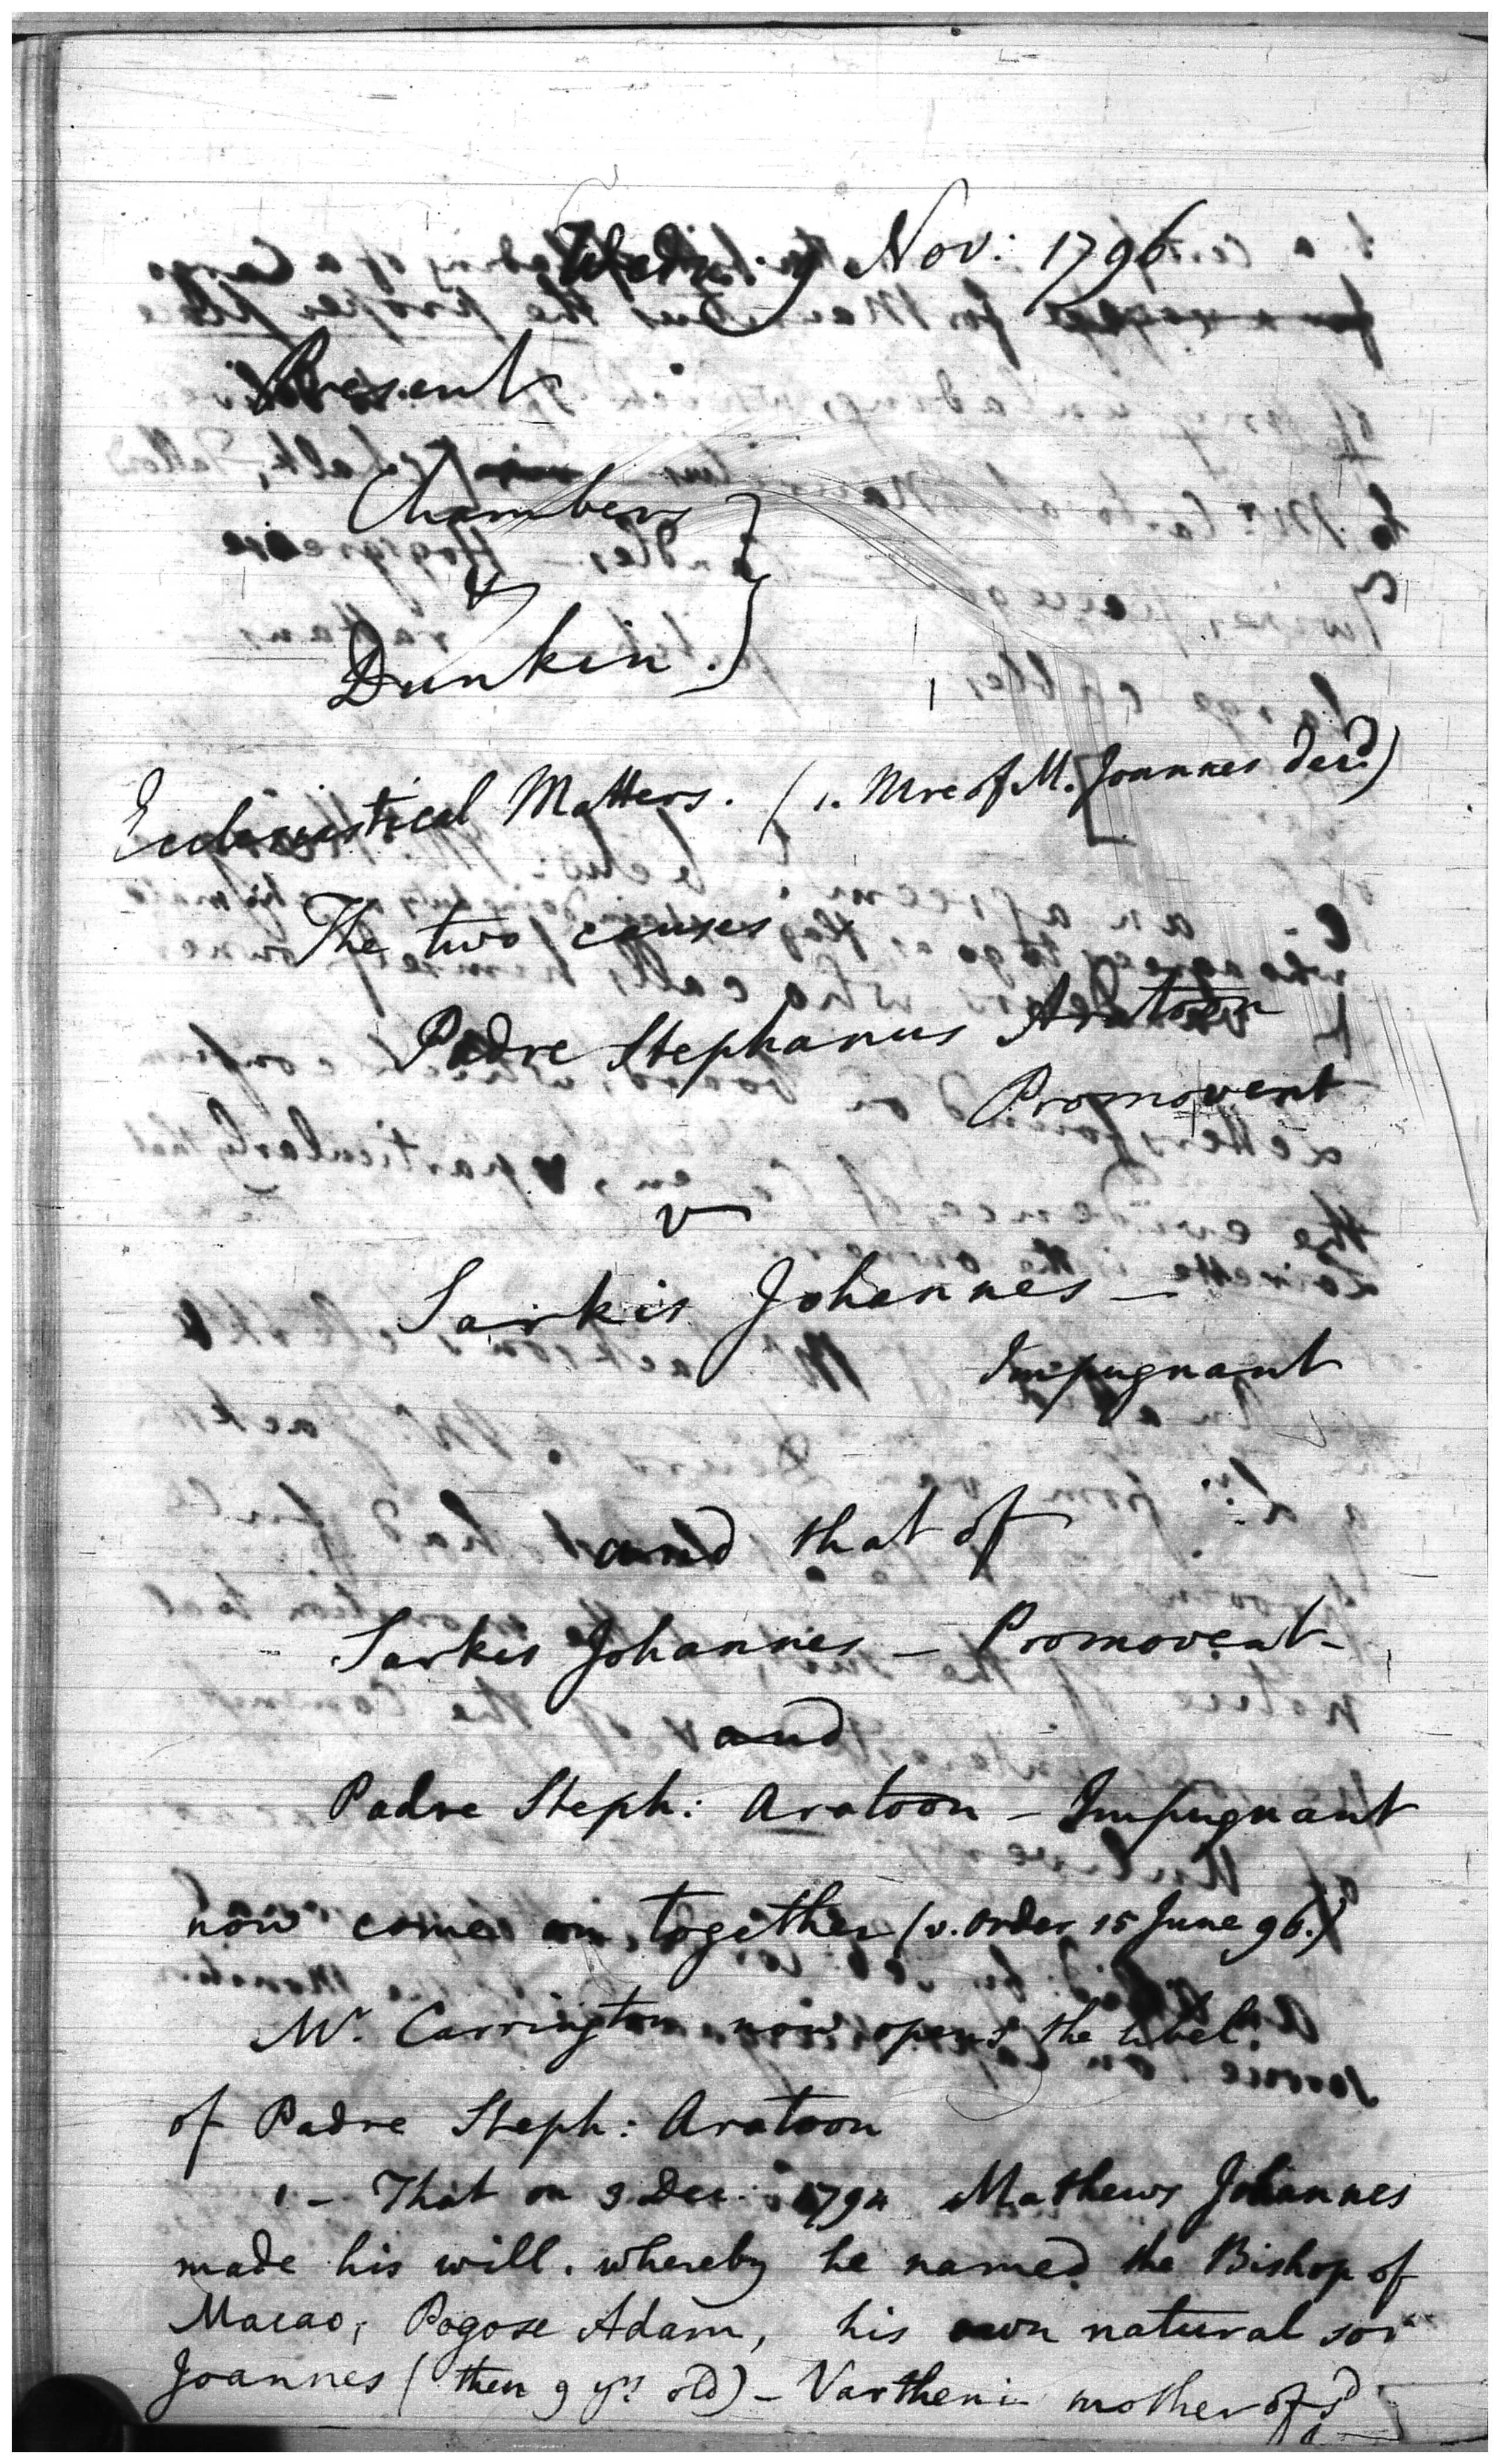 Wed: 9 Nov: 1796
Present
Chambers
&
Dunkin.
Ecclesiastical Matters. (1. Mre of M. Joannes decd.)
The two causes
Padre Stephanus Aratoon
Promovent
v
Sarkis Johannes –
Impugnant
and that of
Sarkis Johannes – Promovent –
and
Padre Steph: Aratoon – Impugnant
now come on together (v. Order 15 June 96.)
Mr. Carrington now opens the libel
of Padre Steph: Aratoon
1 – That on 3 Dec: 1794 Mathews Johannes
made his will. whereby he named the Bishop of
Macao, Pogose Adam, his own natural son
Joannes (then 9 yrs old) – Vartheni mother of sd